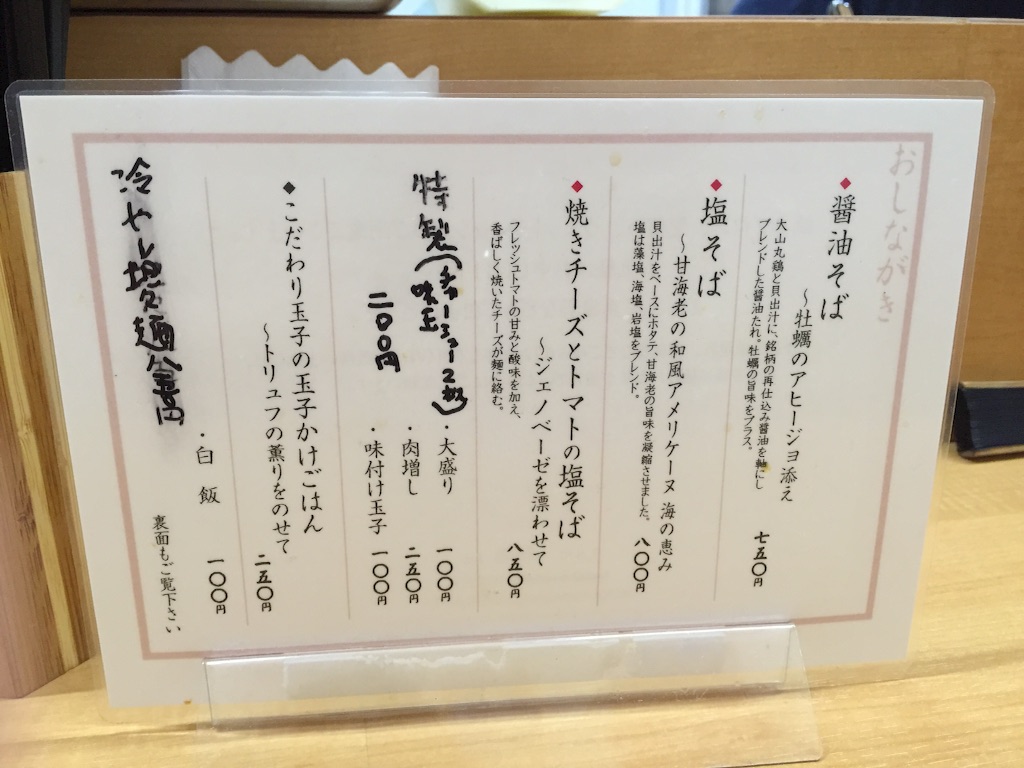 おしながき
◆醤油そば
～牡蠣のアヒージョ添え
大山丸鶏と貝出汁に、銘柄の再仕込み醤油を軸にし
ブレンドした醤油たれ。牡蠣の旨味をプラス。
七五〇円
◆塩そば
～甘海老の和風アメリケーヌ 海の恵み
貝出汁をベースにホタテ、甘海老の旨味を凝縮させました。
塩は藻塩、海塩、岩塩をブレンド。
八〇〇円
◆焼きチーズとトマトの塩そば
～ジェノベーゼを漂わせて
フレッシュトマトの甘みと酸味を加え、
香ばしく焼いたチーズが麺に絡む。
八五〇円
特製(チャーシュー2枚
味玉)
二〇〇円
・大盛り 一〇〇円
・肉増し 二五〇円
・味付け玉子 一〇〇円
◆こだわり玉子の玉子かけごはん
～トリュフの薫りをのせて
二五〇円
・白飯 一〇〇円
冷やし担々麺
裏面もご覧下さい